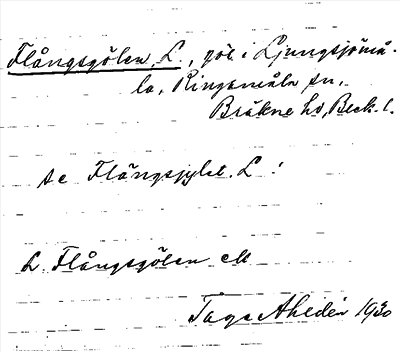 Flångsgölen, L., göl i Ljungsjömå-
la, Ringamåla sn,
Bräkne hd, Blek. l.
se Flångsjylet, L!
L. Flångsgölen ek
Tage Ahldén 1930